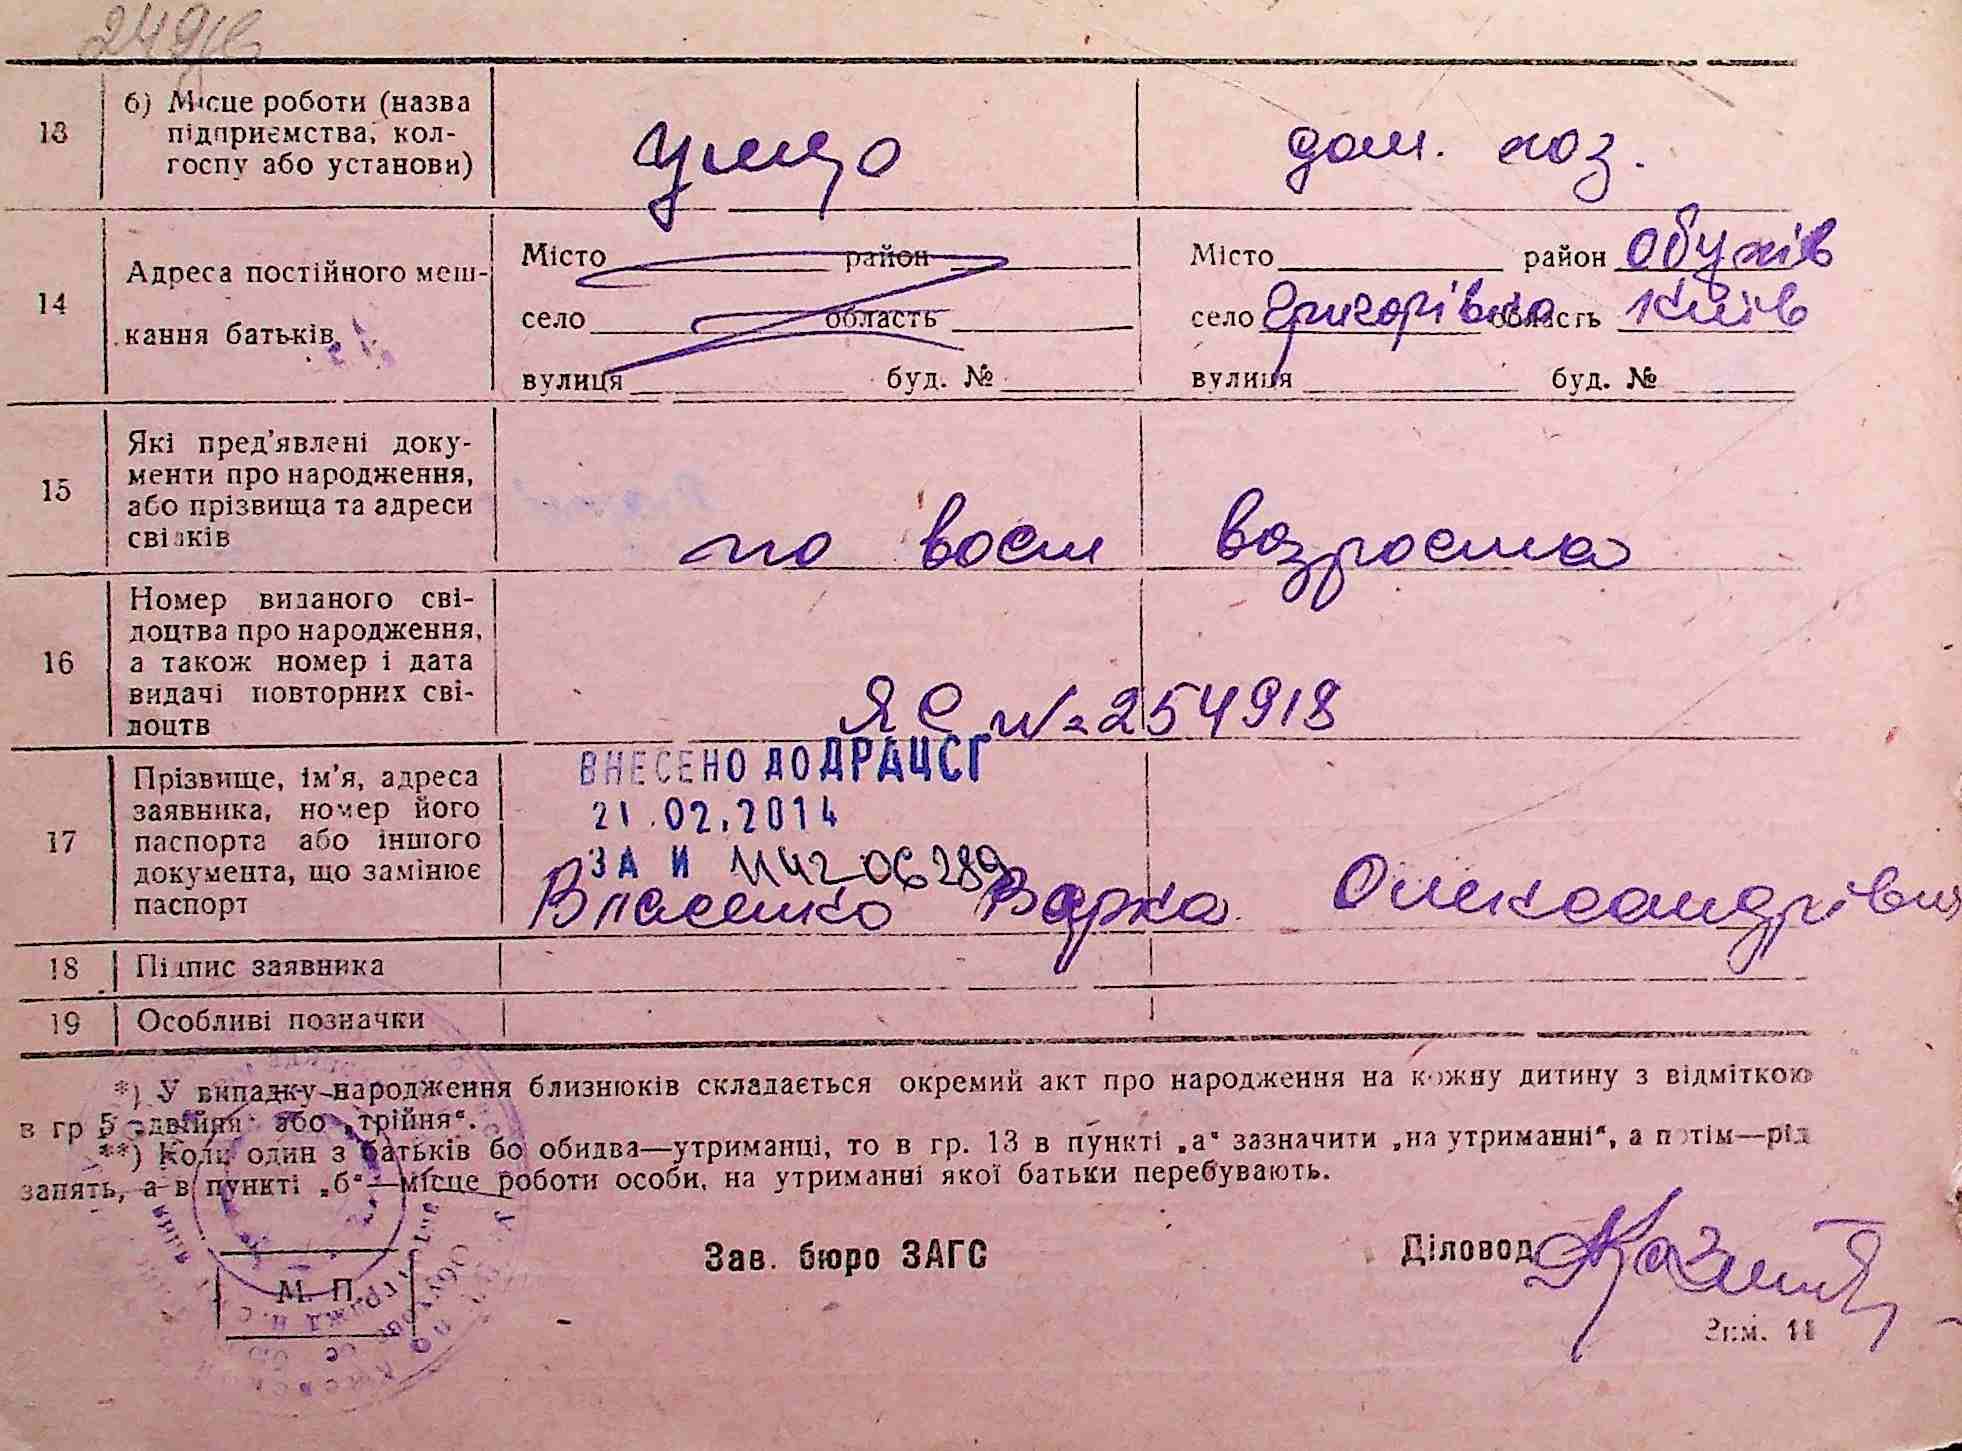 249/в
13 б) Місце роботи (назва
підприємства, кол-
госпу або установи)
дом. хоз.
14 Адреса постійного меш-
кання батьків
Місто район
село область
вулиця буд. №
Місто район Обухів
село Григорівка область Київ
вулиця буд. №
15 Які пред'явлені доку-
менти про народження,
або прізвища та адреси
свідків
по восст возроста
16 Номер виданого сві-
доцтва про народження,
а також номер і дата
видачі повторних сві-
доцтв
ЯС № 254918
17 Прізвище, ім'я, адреса
заявника, номер його
паспорта або іншого
документа, що замінює
паспорт
ВНЕСЕНО ДО ДРАЦСГ
21.02.2014
ЗА №
Власенко Варка Олександрівна
18 Підпис заявника
19 Особливі позначки
*) У випадку народження близнюків складається окремий акт про народження на кожну дитину з відміткою
в гр 5 „двійня“ або „трійня“.
**) Коли один з батьків бо обидва—утриманці, то в гр. 13 в пункті „а“ зазначити „на утриманні“, а потім—рід
занять, а в пункті „б“—місце роботи особи, на утриманні якої батьки перебувають.
Зав. бюро ЗАГС
Діловод
М. П.
Зам. 11